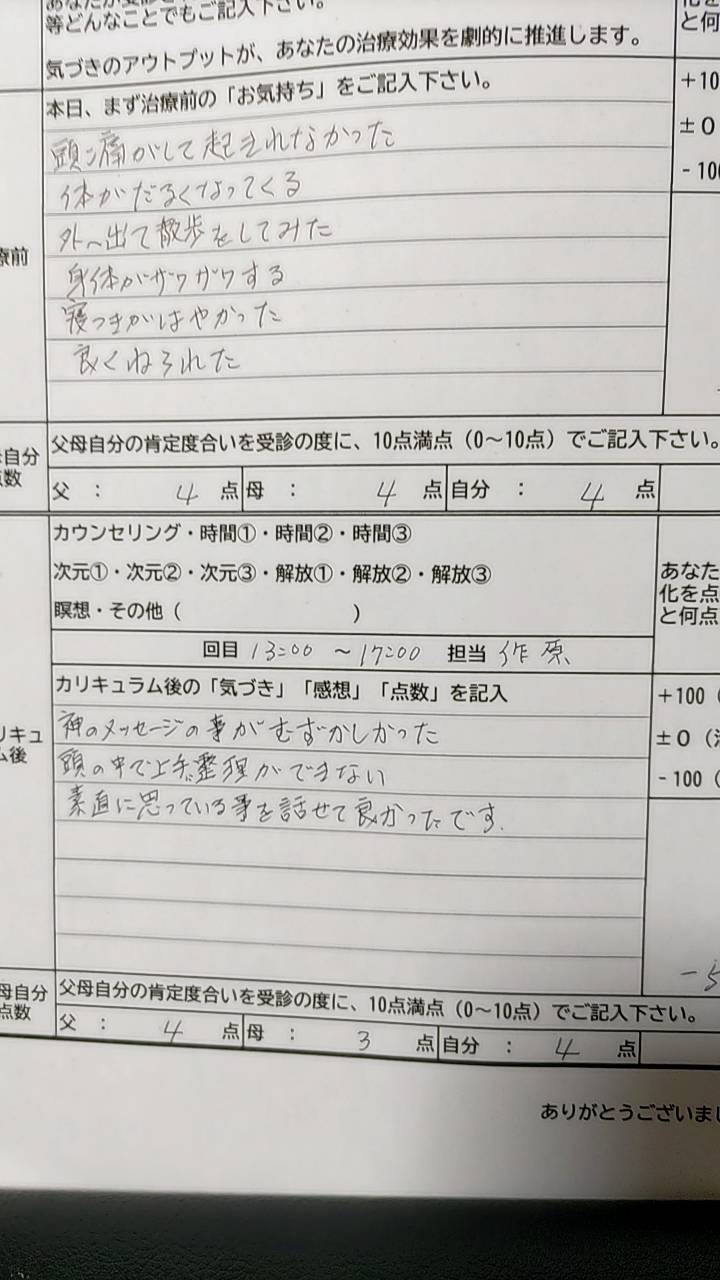 等どんなことでもご記入下さい。
気づきのアウトプットが、あなたの治療効果を劇的に推進します。
と何
本日、まず治療前の「お気持ち」をご記入下さい。
+10
±0
-100
頭が痛がして起きれなかった
体がだるくなってくる
外へ出て散歩をしてみた
療前
身体がザワザワする
寝つきがはやかった
良くねられた
父母自分の肯定度合いを受診の度に、10点満点（0～10点）でご記入下さい。
母自分
点数
父 ： 4 点 母 ： 4 点 自分 ： 4 点
カウンセリング・時間①・時間②・時間③
次元①・次元②・次元③・解放①・解放②・解放③
瞑想・その他（ ）
あなた
化を点
と何点
回目 13:00 ～17:00 担当 作原
カリキュラム後の「気づき」「感想」「点数」を記入
+100（
±0（
-100（
リキュ
ム後
神のメッセージの事がむずかしかった
頭の中で上手く整理ができない
素直に思っている事を話せて良かったです.
-5
父母自分の肯定度合いを受診の度に、10点満点（0～10点）でご記入下さい。
母自分
点数
父 ： 4 点 母 ： 3 点 自分 ： 4 点
ありがとうございまし